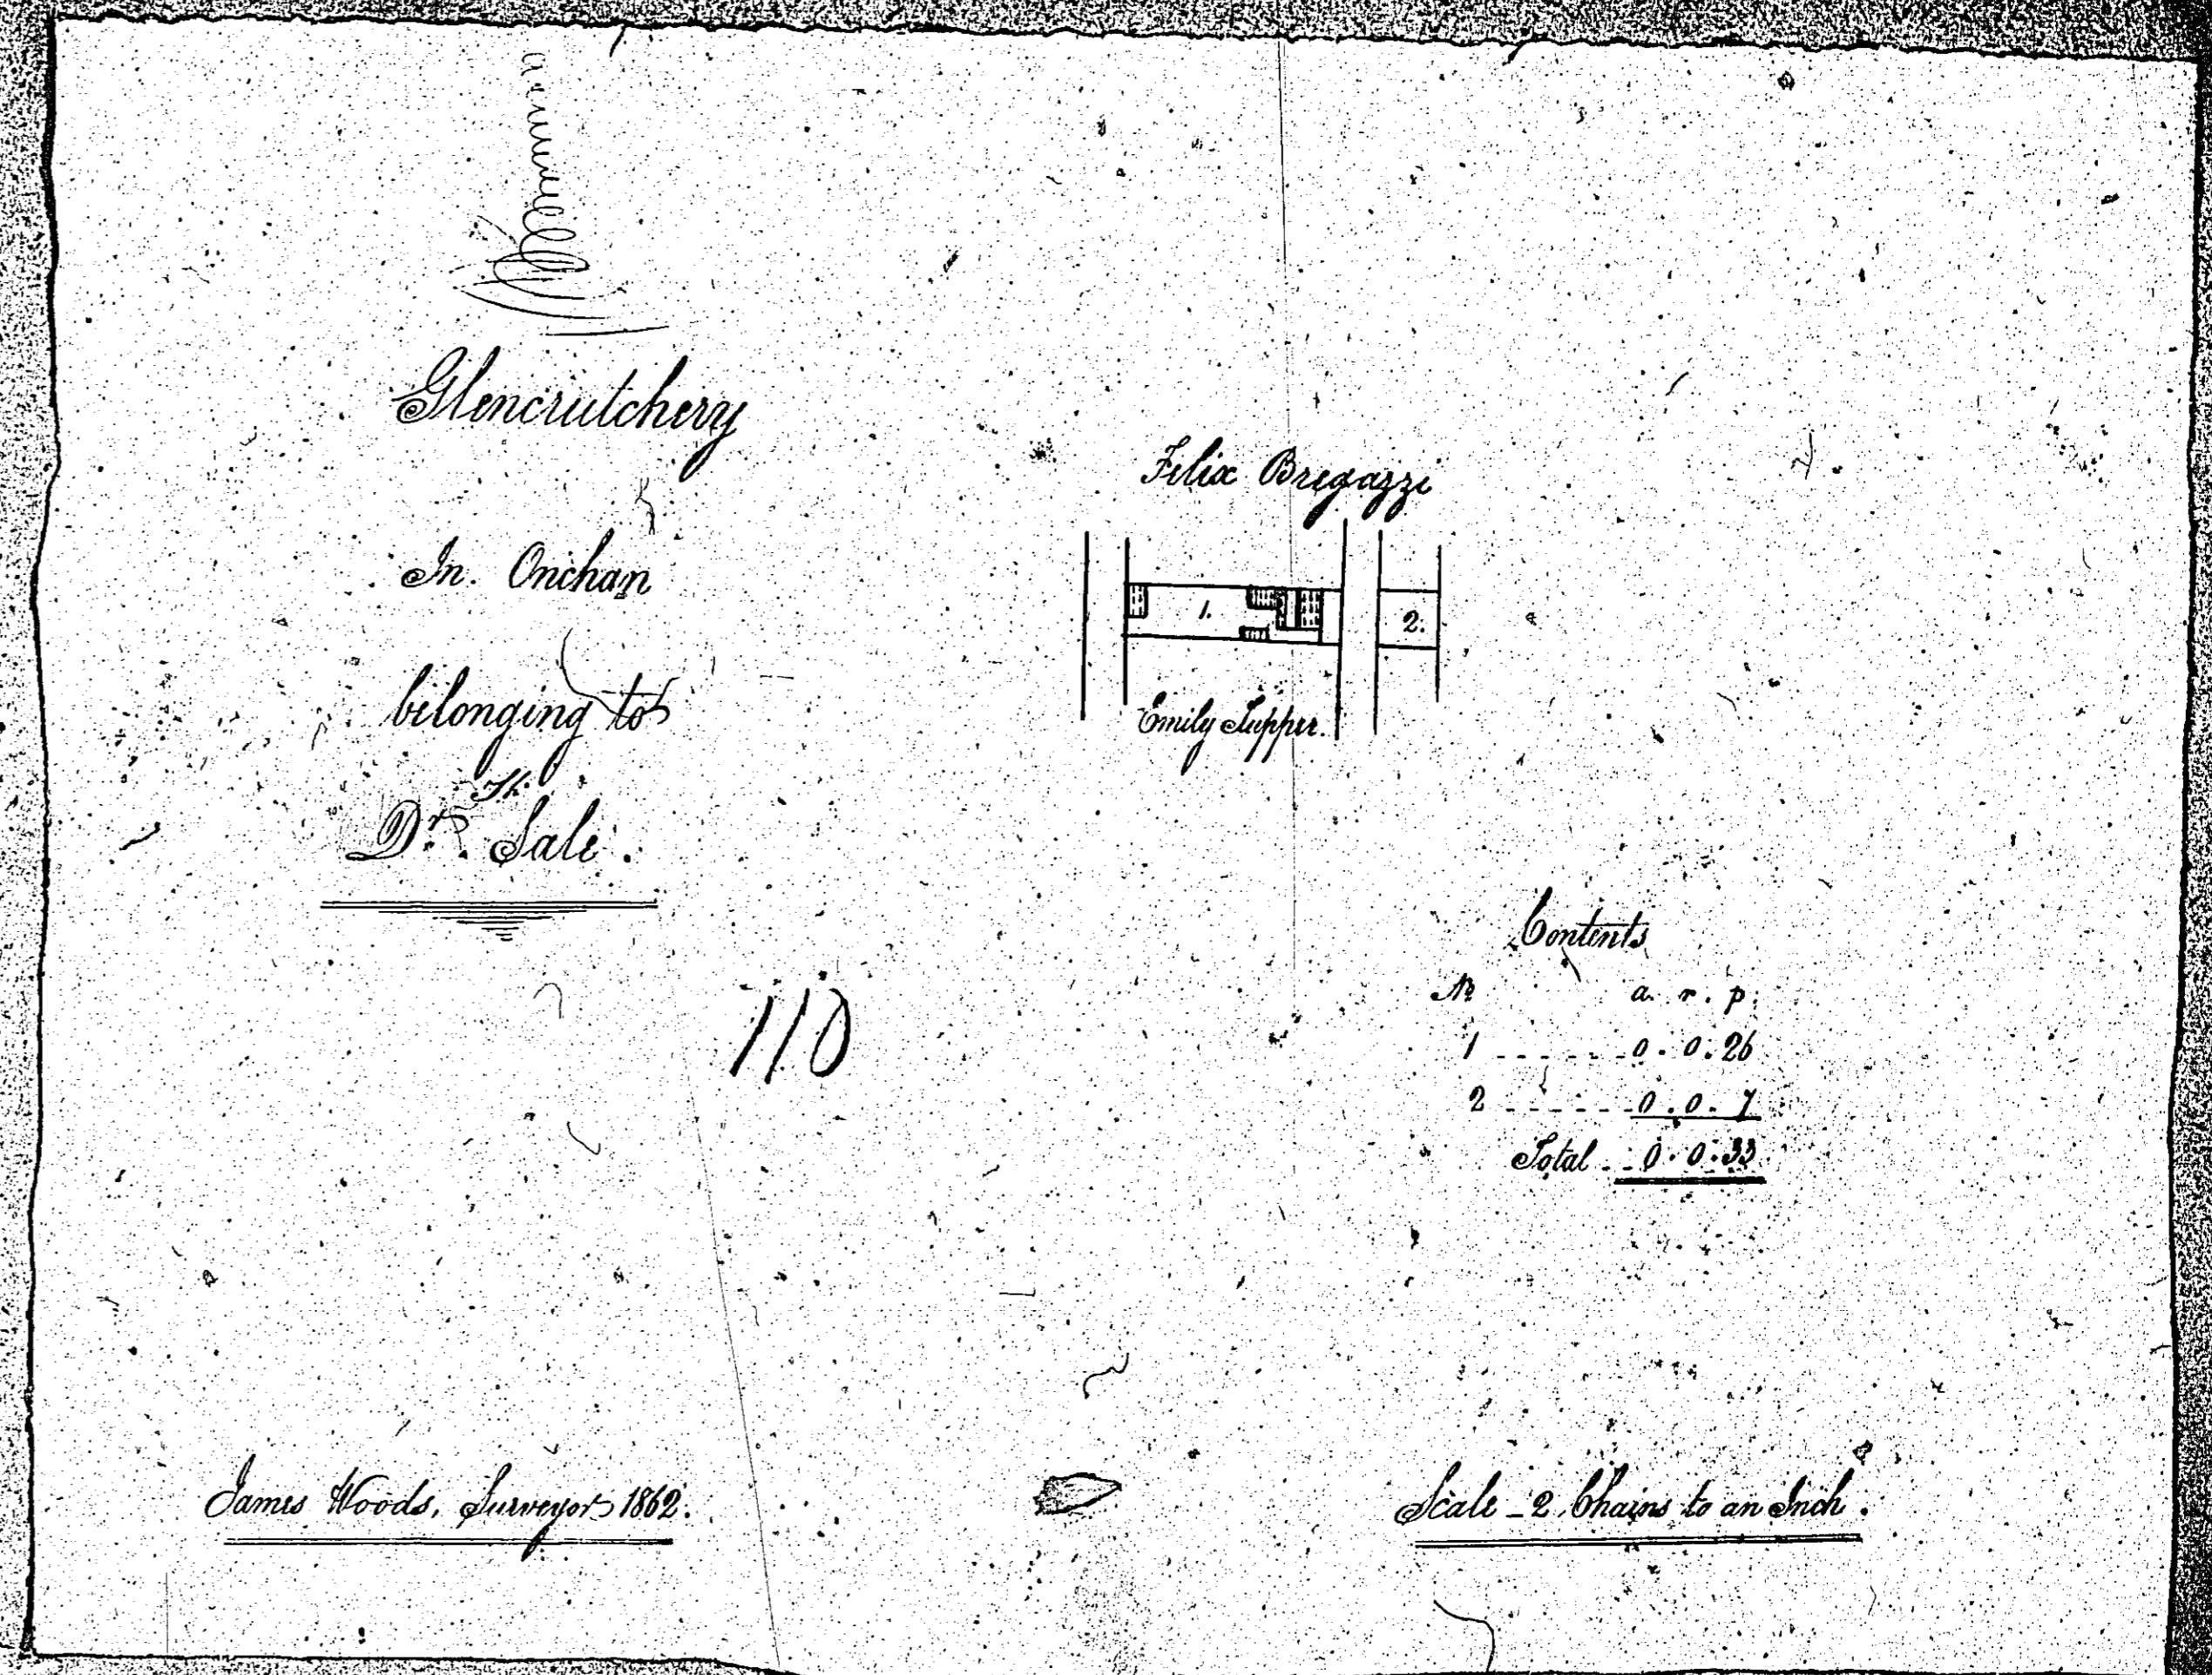 Glencrutchery
In Onchan
belonging to
Th.
Dr. Sale.
110
Felix Bregazzi
1.
2.
Emily Tupper.
Contents
No a. r. p.
1 ------ 0. 0. 26
2 ------ 0. 0. 7
Total -- 0. 0. 33
James Woods, Surveyor 1862.
Scale - 2 Chains to an Inch.